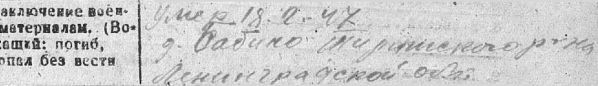 заключение воен-
материалам. (Во-
кащий: погиб,
опал без вести
умер 18.2.47
д. Бабино Тиринского р-на
Ленинградской обл